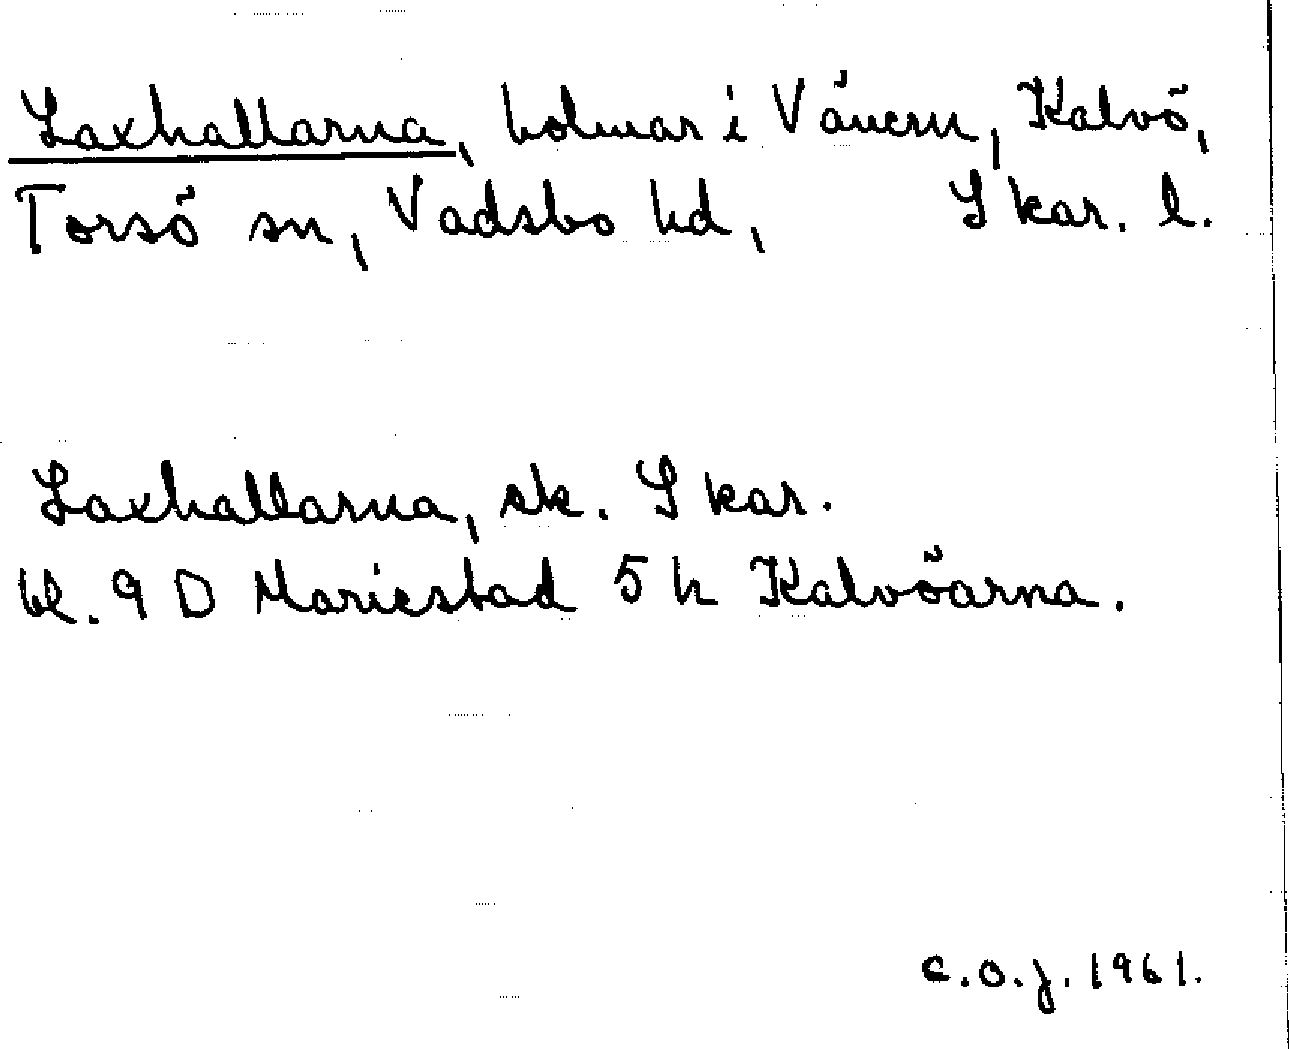 Laxhallarna, holmar i Vänern, Kalvö,
Torsö sn, Vadsbo hd, Skar. l.
Laxhallarna, ek. Skar.
bl. 9 D Mariestad 5 h Kalvöarna.
C.O.J. 1961.